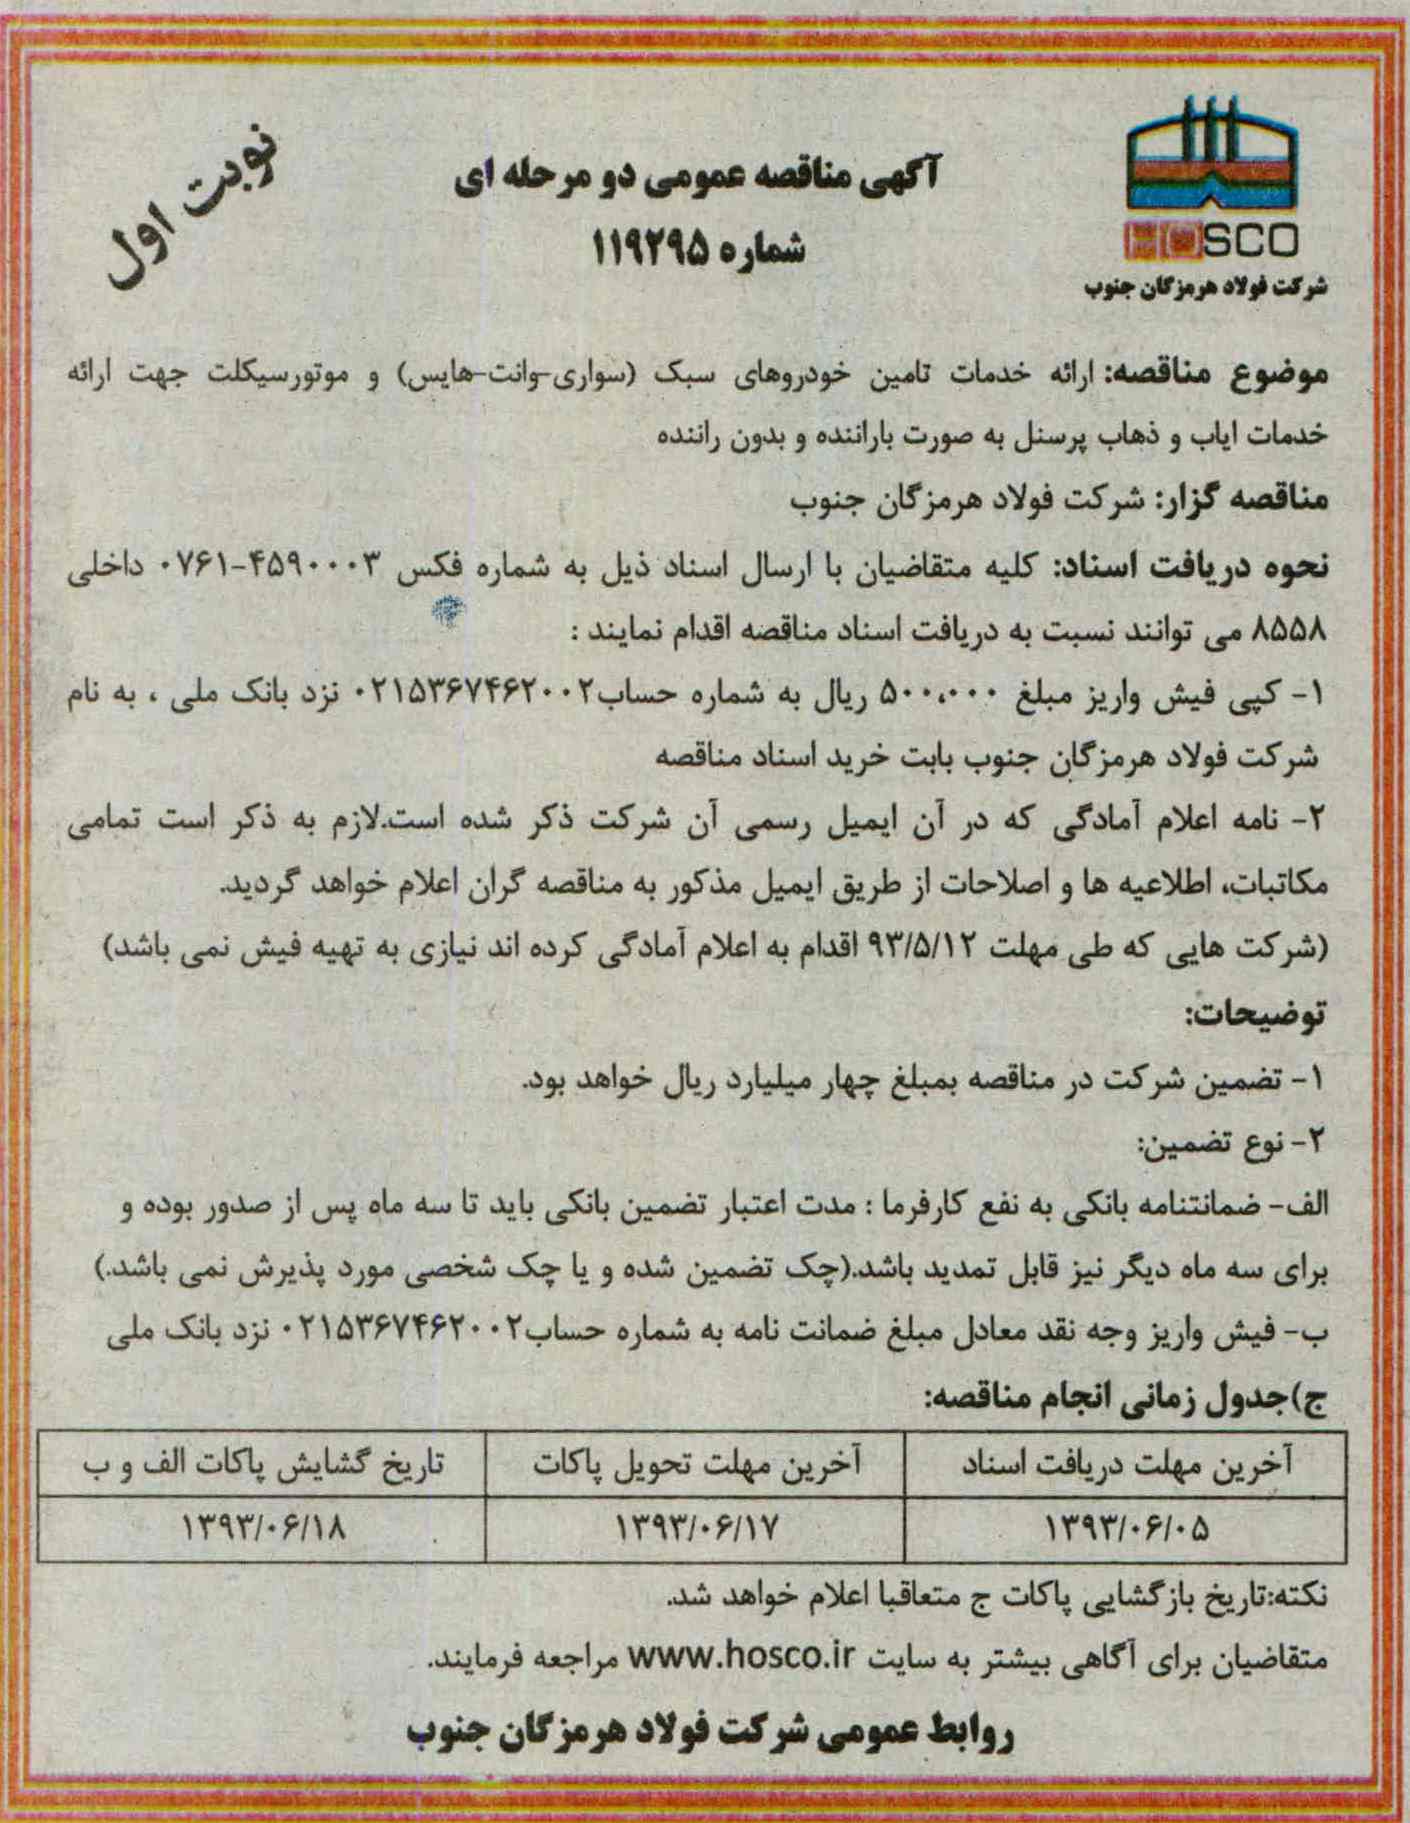 HOSCO
شرکت فولاد هرمزگان جنوب
آگهی مناقصه عمومی دو مرحله ای
شماره ۱۱۹۲۹۵
نوبت اول
موضوع مناقصه: ارائه خدمات تامین خودروهای سبک (سواری-وانت-هایس) و موتورسیکلت جهت ارائه
خدمات ایاب و ذهاب پرسنل به صورت باراننده و بدون راننده
مناقصه گزار: شرکت فولاد هرمزگان جنوب
نحوه دریافت اسناد: کلیه متقاضیان با ارسال اسناد ذیل به شماره فکس ۴۵۹۰۰۰۳-۰۷۶۱ داخلی
۸۵۵۸ می توانند نسبت به دریافت اسناد مناقصه اقدام نمایند :
۱- کپی فیش واریز مبلغ ۵۰۰،۰۰۰ ریال به شماره حساب۰۲۱۵۳۶۷۴۶۲۰۰۲ نزد بانک ملی ، به نام
شرکت فولاد هرمزگان جنوب بابت خرید اسناد مناقصه
۲- نامه اعلام آمادگی که در آن ایمیل رسمی آن شرکت ذکر شده است.لازم به ذکر است تمامی
مکاتبات، اطلاعیه ها و اصلاحات از طریق ایمیل مذکور به مناقصه گران اعلام خواهد گردید.
(شرکت هایی که طی مهلت ۹۳/۵/۱۲ اقدام به اعلام آمادگی کرده اند نیازی به تهیه فیش نمی باشد)
توضیحات:
۱- تضمین شرکت در مناقصه بمبلغ چهار میلیارد ریال خواهد بود.
۲- نوع تضمین:
الف- ضمانتنامه بانکی به نفع کارفرما : مدت اعتبار تضمین بانکی باید تا سه ماه پس از صدور بوده و
برای سه ماه دیگر نیز قابل تمدید باشد.(چک تضمین شده و یا چک شخصی مورد پذیرش نمی باشد.)
ب- فیش واریز وجه نقد معادل مبلغ ضمانت نامه به شماره حساب۰۲۱۵۳۶۷۴۶۲۰۰۲ نزد بانک ملی
ج)جدول زمانی انجام مناقصه:
آخرین مهلت دریافت اسناد آخرین مهلت تحویل پاکات تاریخ گشایش پاکات الف و ب
۱۳۹۳/۰۶/۰۵ ۱۳۹۳/۰۶/۱۷ ۱۳۹۳/۰۶/۱۸
نکته:تاریخ بازگشایی پاکات ج متعاقبا اعلام خواهد شد.
متقاضیان برای آگاهی بیشتر به سایت www.hosco.ir مراجعه فرمایند.
روابط عمومی شرکت فولاد هرمزگان جنوب